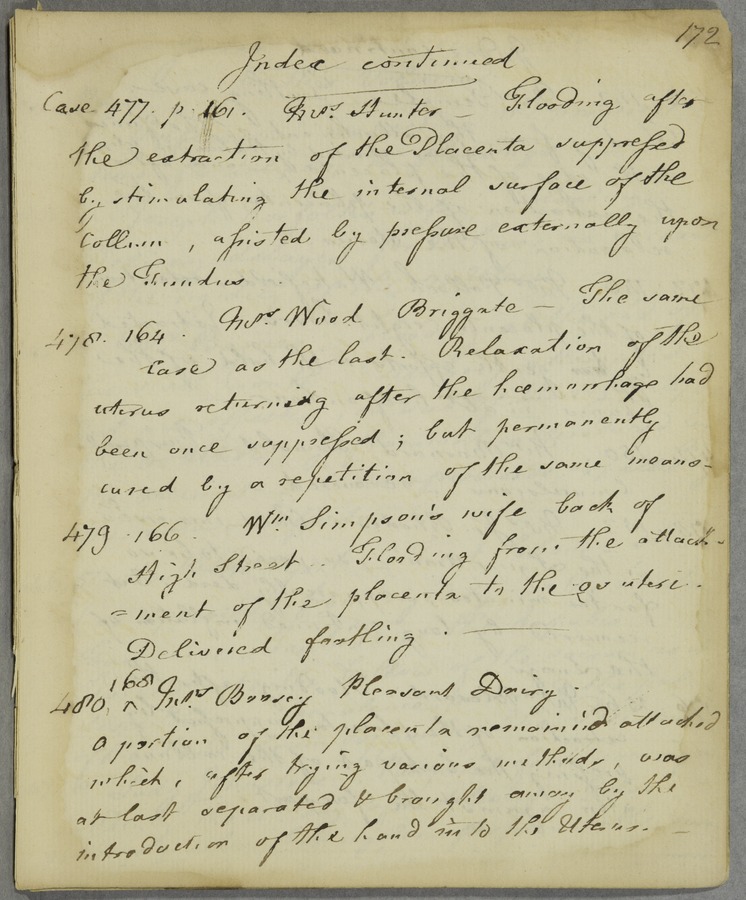 172
Index continued
Case 477. p. 161. Mrs. Hunter — Flooding after
the extraction of the Placenta suppressed
by stimulating the internal surface of the
Collum, assisted by pressure externally upon
the Fundus
478. 164. Mrs. Wood Briggate — The same
case as the last. Relaxation of the
uterus returning after the hœmorrhage had
been once suppressed; but permanently
cured by a repetition of the same means—
479 166. Wm. Simpson's wife back of
High Street. Flooding from the attach-
=ment of the placenta to the os uteri.
Delivered footling. —
168
480, ^ Mrs Pleasant Dairy.
a portion of the placenta remained attached
which, after trying various methods, was
at last separated & brought away by the
introduction of the hand into the Uterus. —